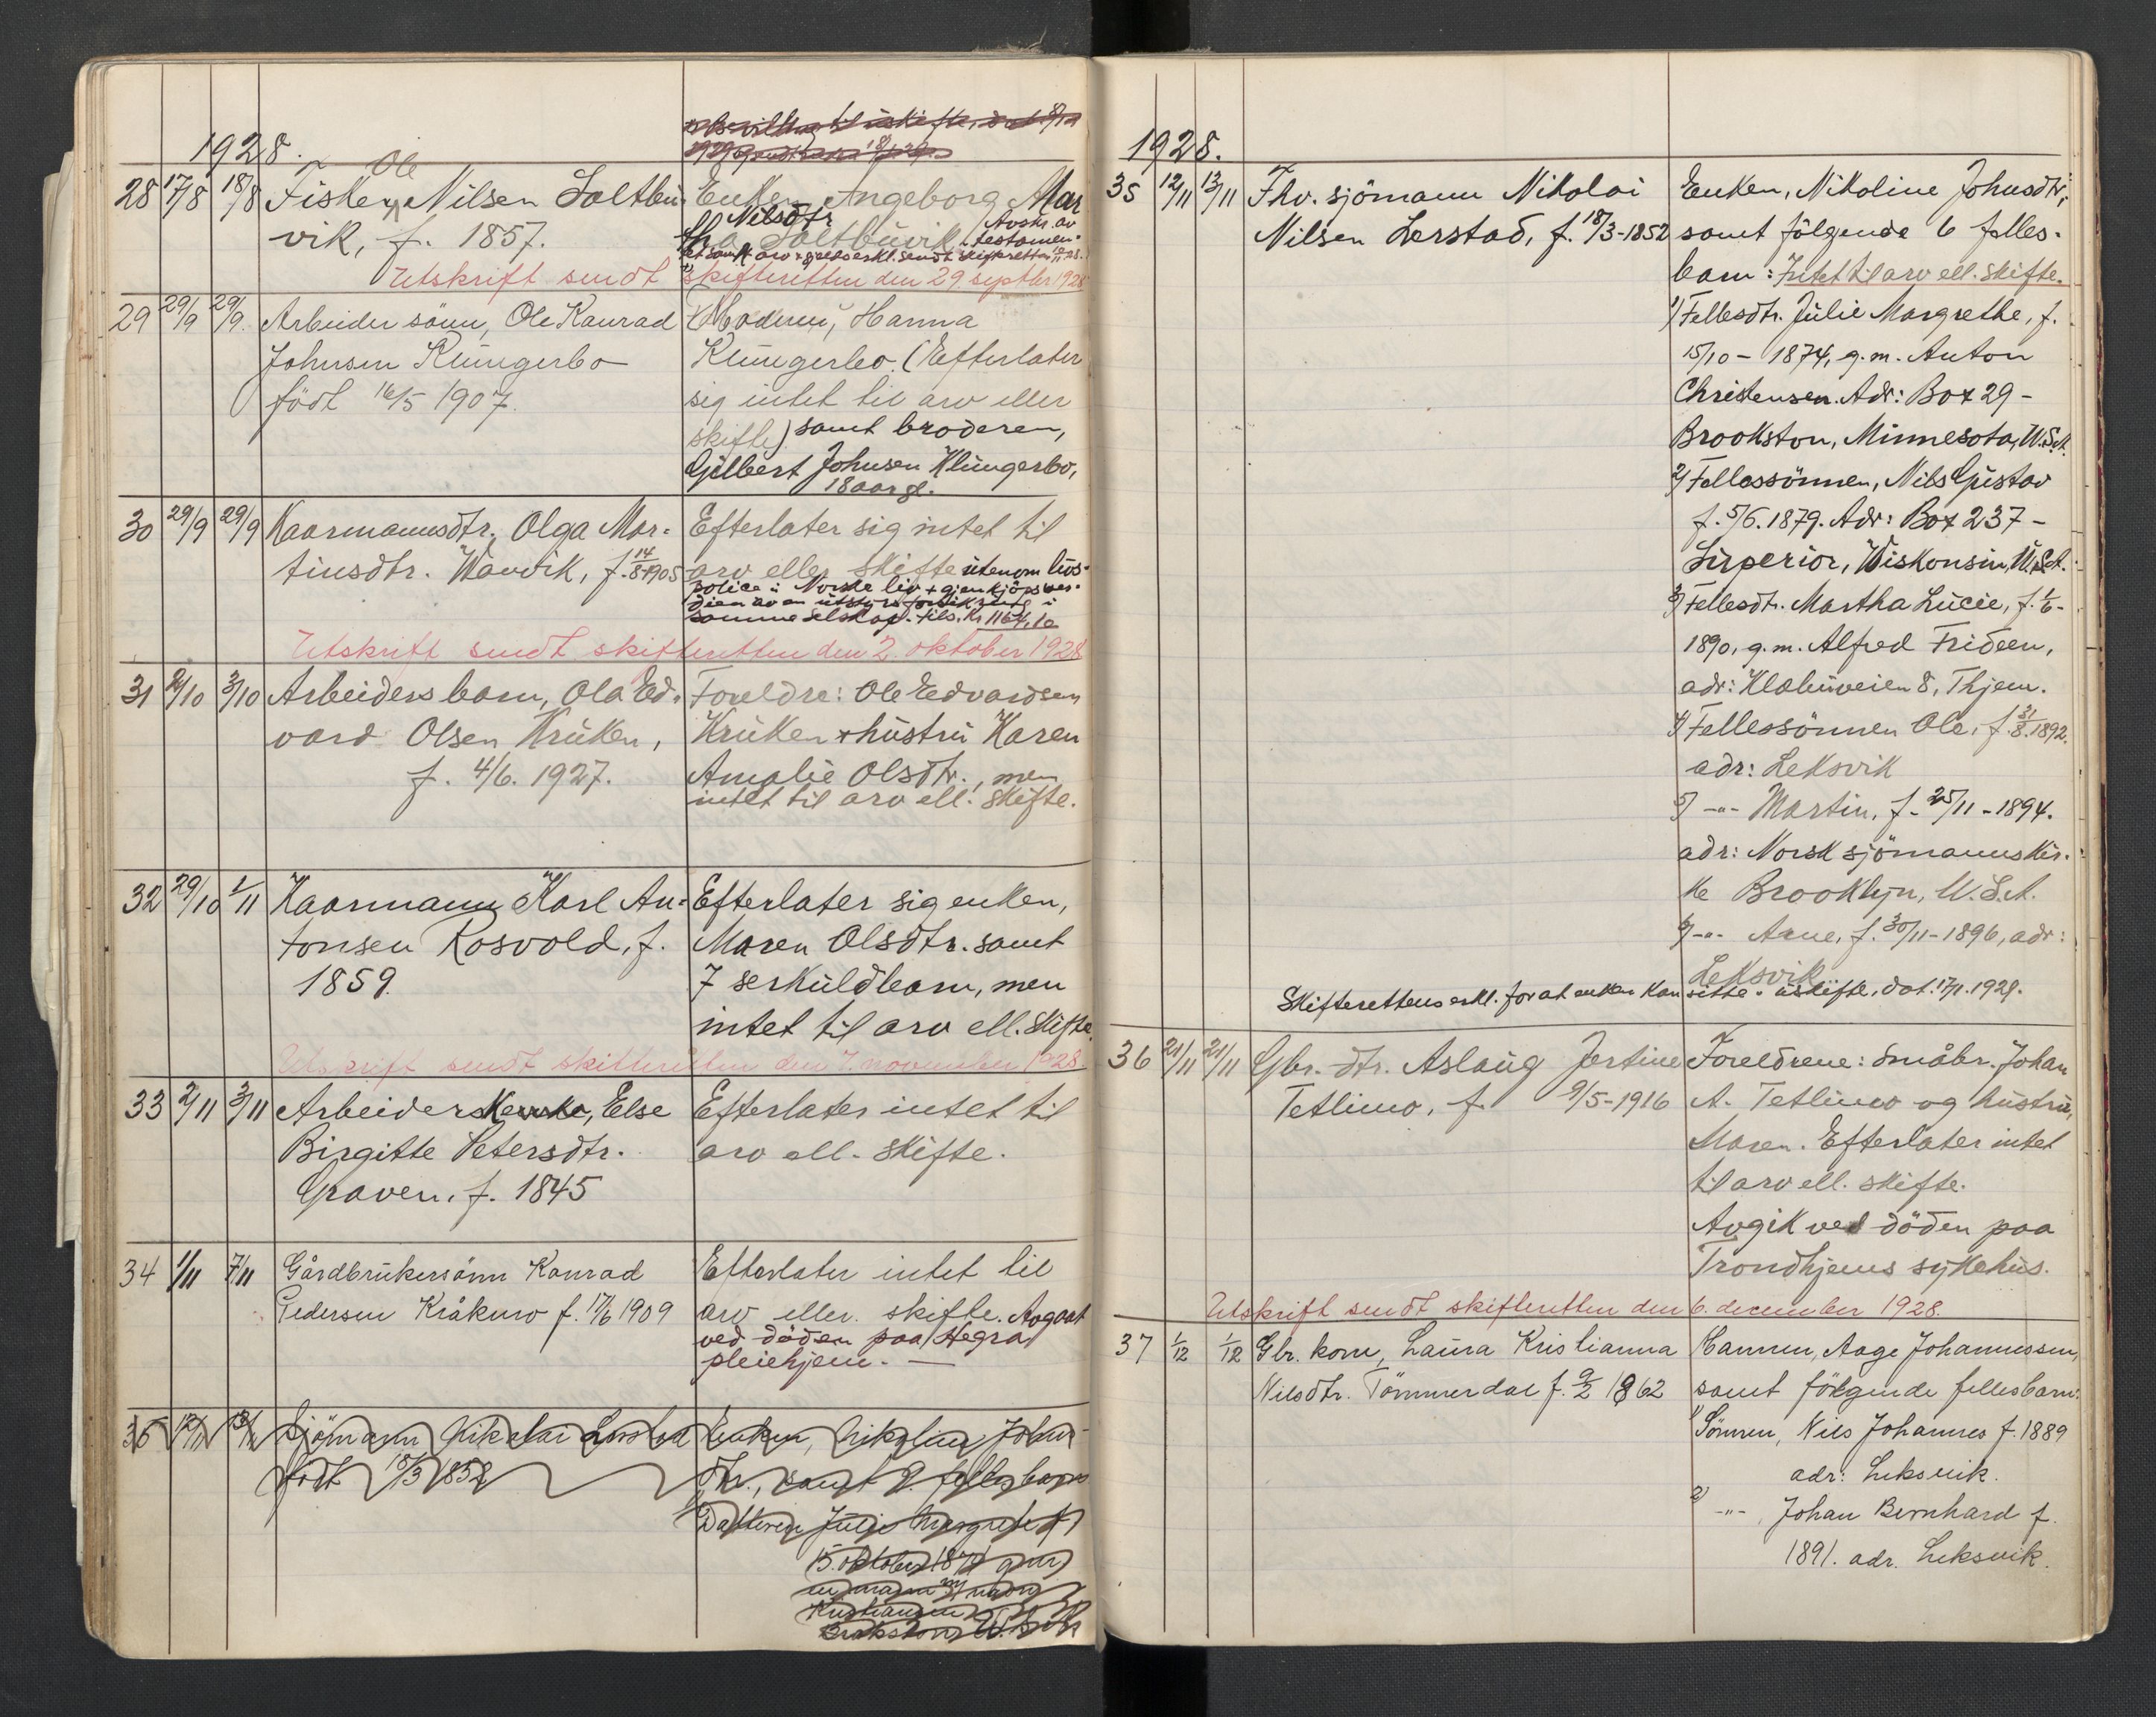 1928.
28 17/8 18/8 Fisker Ole Nilsen Saltbu-
vik, f. 1857.
Enken Ingeborg Mar
tha Nilsdtr Saltbuvik (Avskr. av
testamen-
tet samt arv & gjelds erkl. sendt skifteretten
Utskrift sendt skifteretten den 29 septbr 1928
29 29/9 29/9. Arbeider sönn, Ole Konrad
Johnsen Klungerbo
födt 16/5 1907.
Moderen, Hanna
Klungerbo. (Efterlater
sig intet til arv eller
skifte) samt broderen,
Gilbert Johnsen Klungerbo,
18 aar gl.
30 29/9 29/9 Kaarmannsdtr. Olga Mar-
tinsdtr. Wavik, f. 14/8-1905
Efterlater sig intet til
arv eller skifte utenom livs-
police i Norske liv + gjenkjöpsver-
dien av en utstyrsforsikring i
samme selskap. tils. kr 1164,10
Utskrift sendt skifteretten den 2. oktober 1928
31 2/10 3/10 Arbeiders barn, Ola Ed-
vard Olsen Krüken,
f. 4/6. 1927.
Foreldre: Ole Edvardsen
Krüken + hustru Karen
Amalie Olsdtr., men
intet til arv ell. skifte.
32 29/10 1/11 Kaarmann Karl An-
tonsen Rosvold, f.
1859.
Efterlater sig enken,
Maren Olsdtr. samt
7 serkuldbarn, men
intet til arv ell. skifte.
Utskrift sendt skifteretten den 7. november 1928
33 2/11 3/11 Arbeiderske, Else
Birgitte Petersdtr.
Graven, f. 1845
Efterlater intet til
arv ell. skifte.
34 1/11 7/11 Gårdbrukersönn Konrad
Pedersen Kråkmo f. 17/6 1909
Efterlater intet til
arv eller skifte. Avgaat
ved döden paa Hegra
pleiehjem. —
35 12/11 13/11 Sjömann Nikolai Lerstad
födt 18/3 1852
Enken, Nikoline Johns-
dtr., samt 2. fellesbarn
1) Datteren Julie Margrete f
15. oktober 1874 gm
Kristiansen
1928.
35 12/11 13/11 Fhv. sjömann Nikolai
Nilsen Lerstad, f. 18/3-1852
Enken, Nikoline Johnsdtr,
samt fölgende 6 felles-
barn: Intet til arv ell. skifte.
1) Fellesdtr. Julie Margrethe, f.
15/10 - 1874, g.m. Anton
Christensen. Adr: Box 29 -
Brookston, Minnesota, U.S.A.
2) Fellessönnen, Nils Gustav
f. 5/6. 1879. Adr: Box 237 -
Superior, Wiskonsin, U.S.A.
3) Fellesdtr. Martha Lucie, f. 1/6-
1890, g.m. Alfred Frideen,
adr: Klabuveien 8, Thjem.
4) Fellessönnen Ole, f. 31/8. 1892.
adr: Leksvik
5) -"- Martin, f. 25/11 - 1894.
adr: Norsk sjömannskir-
ke Brooklyn, U.S.A.
6) -"- Arne, f. 30/11 - 1896, adr:
Leksvik
Skifterettens erkl. for at enken kan sitte i uskifte, dat. 17/1. 1929.
36 21/11 21/11 Gbr. dtr. Aslaug Jortine
Tetlimo, f. 9/5-1916
Foreldrene: Småbr. Johan
A. Tetlimo og hustru,
Maren. Efterlater intet
til arv ell. skifte.
Avgik ved döden paa
Trondhjems sykehus.
Utskrift sendt skifteretten den 6. december 1928.
37 1/12 1/12 Gbr. kone, Laura Kristianna
Nilsdtr. Tömmerdal f. 9/2 1862
Mannen, Aage Johannessen,
samt fölgende fellesbarn:
1) Sönnen, Nils Johannes f. 1889
adr: Leksvik.
2) -"- Johan Bernhard f.
1891. adr. Leksvik.